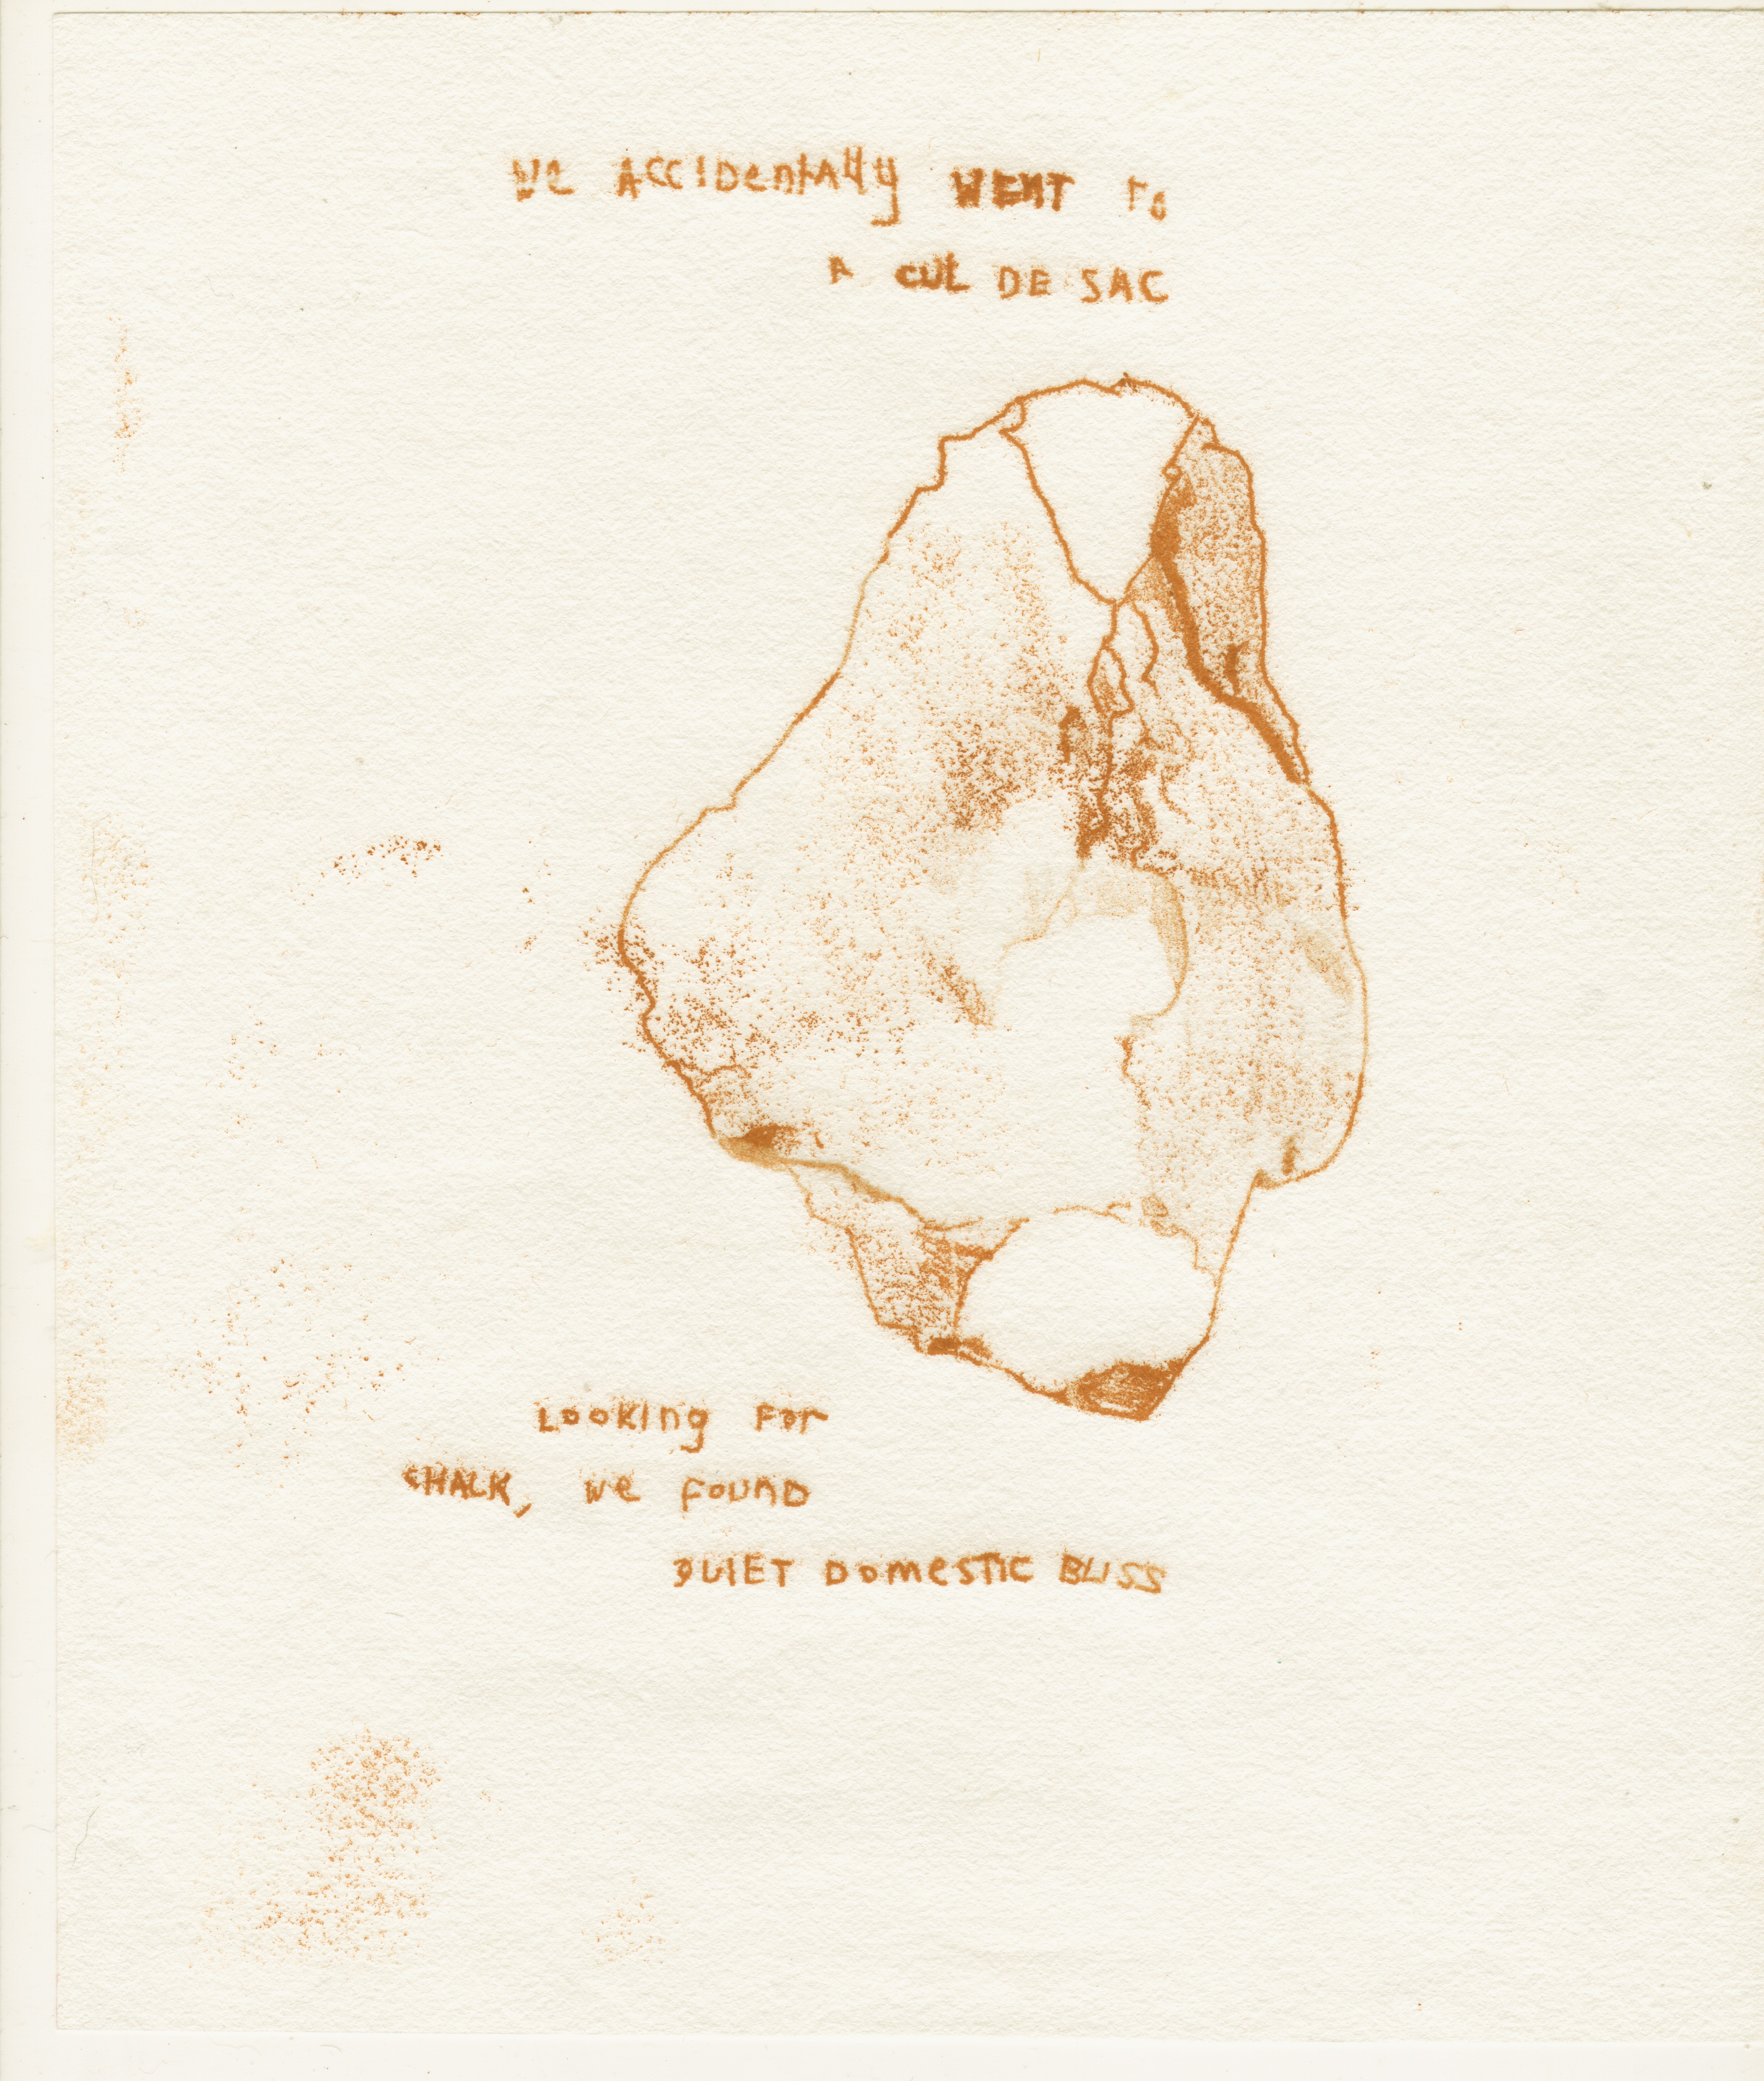 we ACCIDentAlly WENT To
A CUL DE SAC
LOOKING FOr
CHALK, we FOUND
QUIET DOmeSTIC BLISS